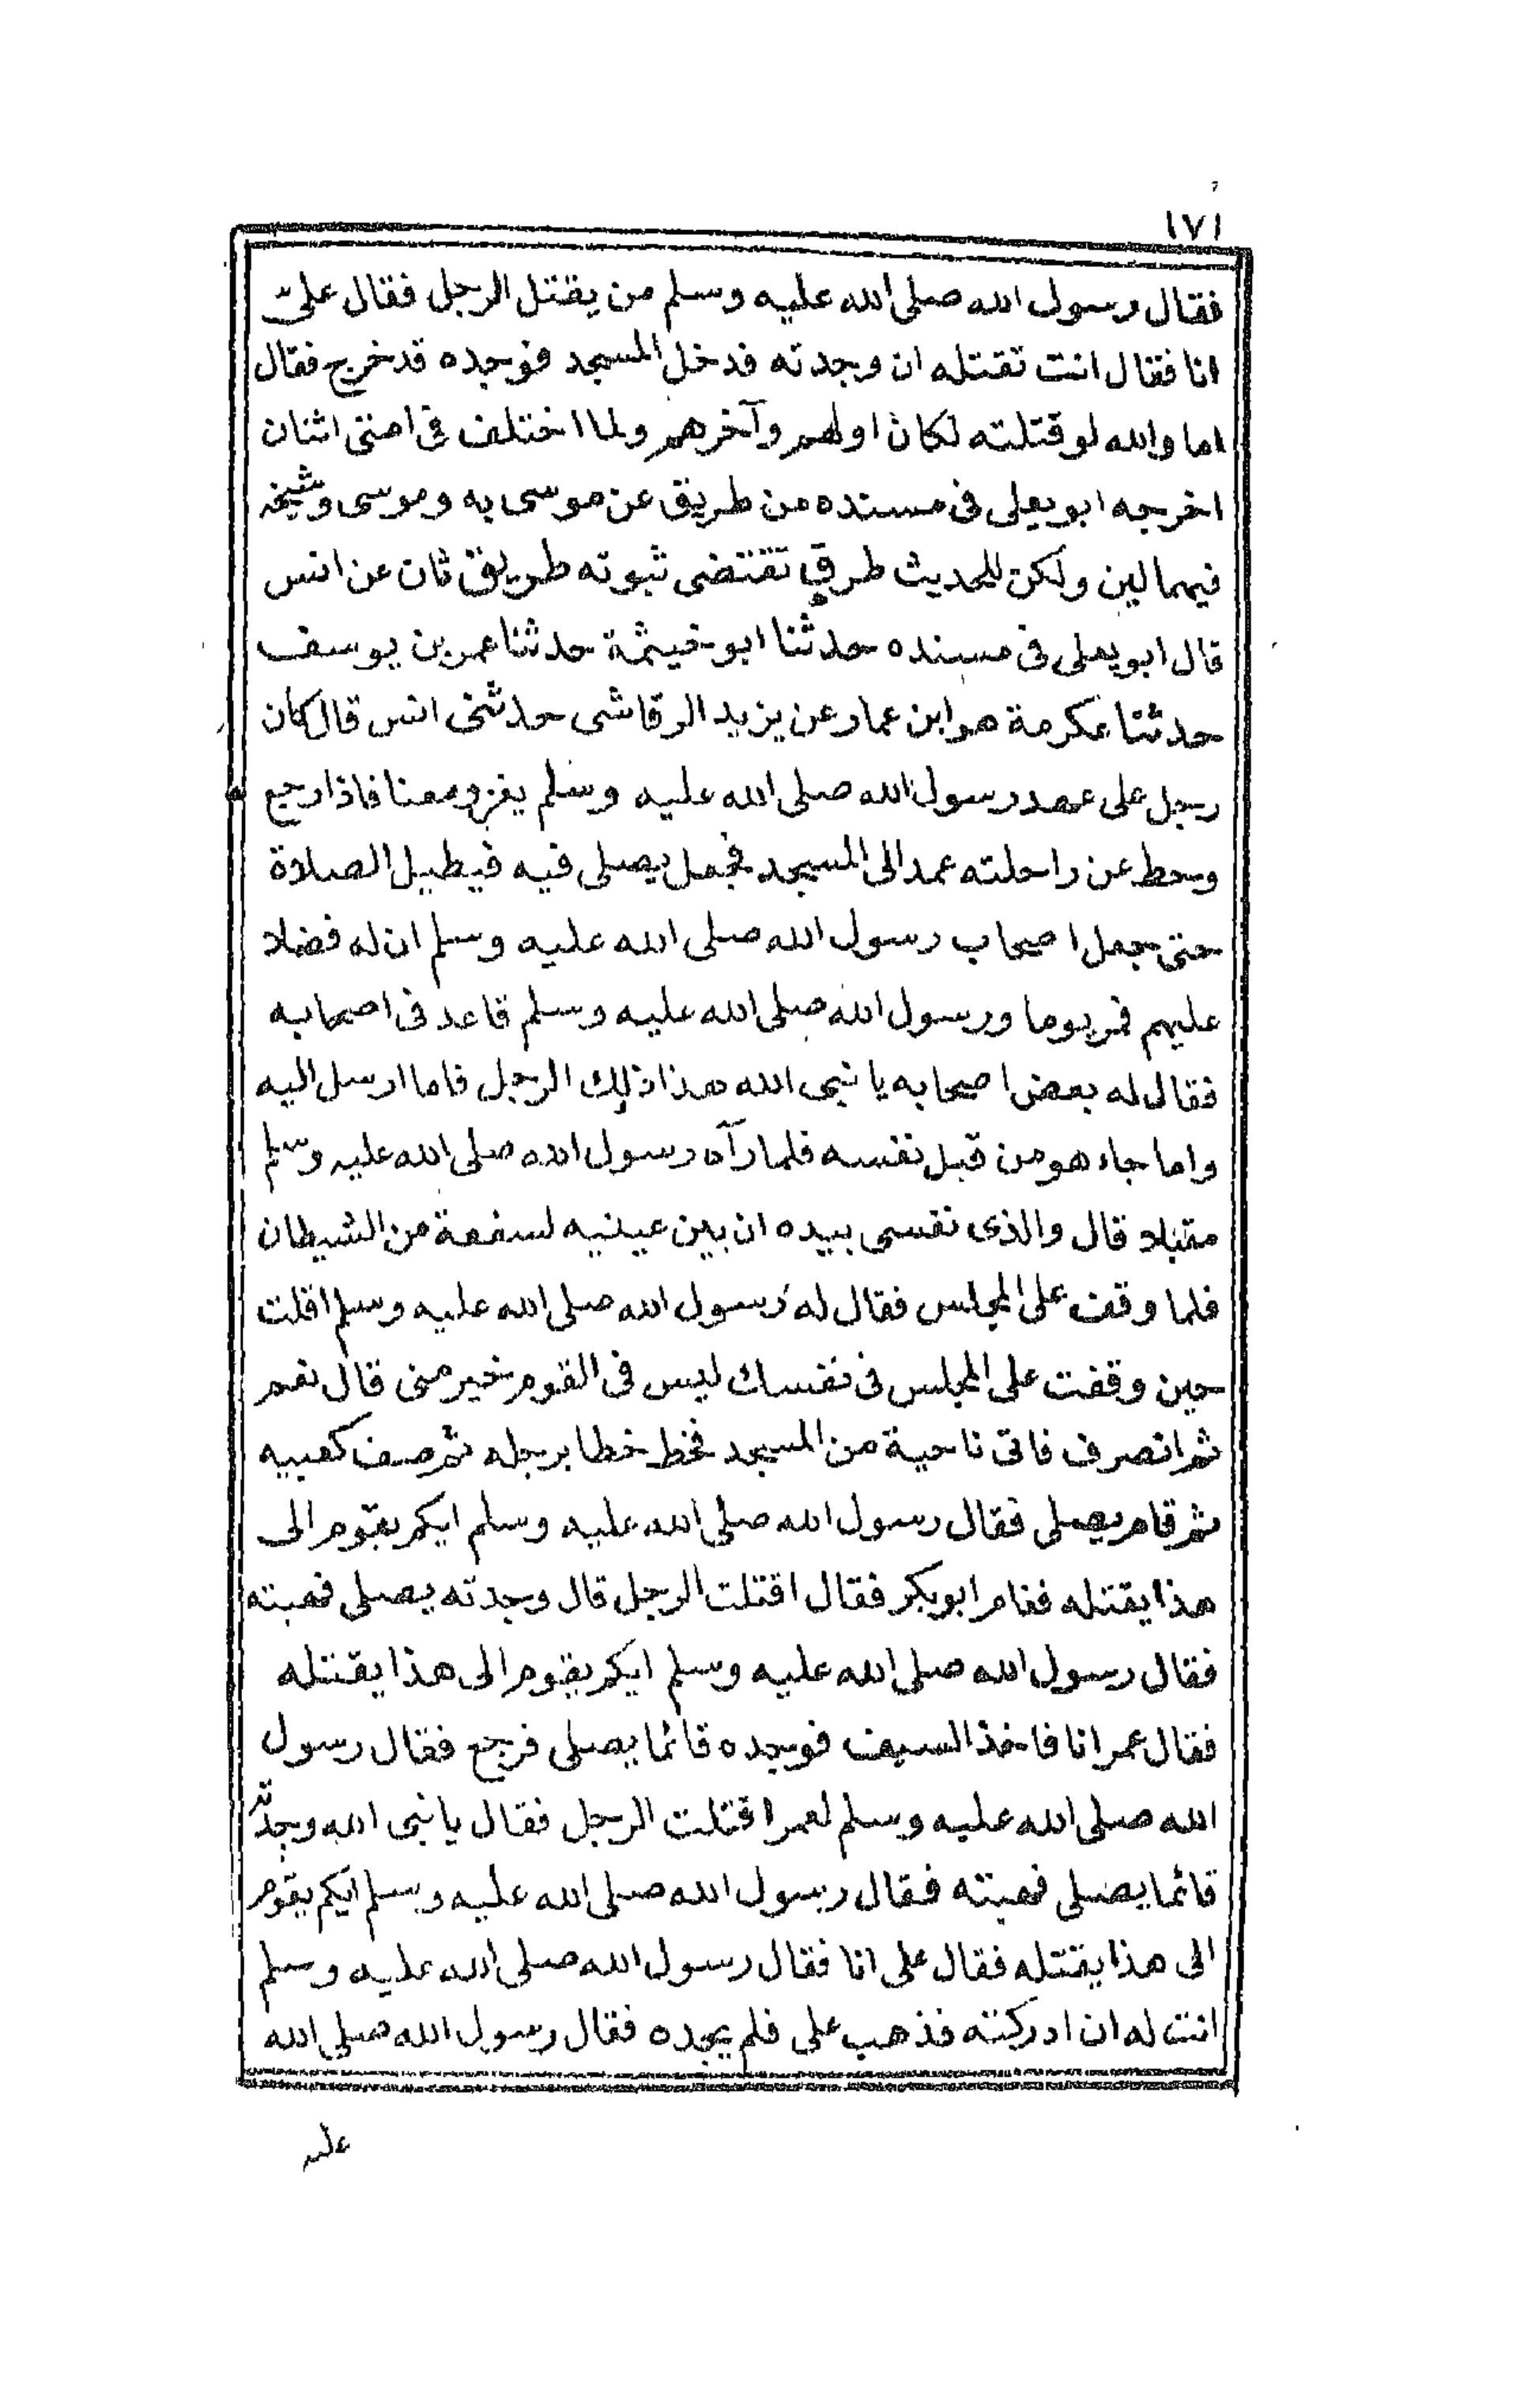 ١٧١
فقال رسول الله صلى الله عليه وسلم من يقتل الرجل فقال علىّ
انا فقال انت تقتله ان وجدته فدخل المسجد فوجده قد خرج فقال
اما والله لو قتلته لكان اولهم وآخرهم ولما اختلف فى امتى اثنان
اخرجه ابو يعلى فى مسنده من طريق عن موسى به وموسى وشيخه
فيهما لين ولكن للحديث طرق تقتضى ثبوته طريق ثان عن انس
قال ابو يعلى فى مسنده حدثنا ابو خيثمة حدثنا عمر بن يوسف
حدثنا عكرمة هو ابن عمار عن يزيد الرقاشى حدثنى انس قال كان
رجل على عهد رسول الله صلى الله عليه وسلم يغزو معنا فاذا رجع
وحط عن راحلته عمد الى المسجد فجعل يصلى فيه فيطيل الصلاة
حتى جعل اصحاب رسول الله صلى الله عليه وسلم ان له فضلا
عليهم فمر يوما ورسول الله صلى الله عليه وسلم قاعد فى اصحابه
فقال له بعض اصحابه يا نبى الله هذا ذلك الرجل فاما ارسل اليه
واما جاء هو من قبل نفسه فلما رآه رسول الله صلى الله عليه وسلم
مقبلا قال والذى نفسى بيده ان بين عينيه لسفعة من الشيطان
فلما وقف على المجلس فقال له رسول الله صلى الله عليه وسلم اقلت
حين وقفت على المجلس فى نفسك ليس فى القوم خير منى قال نعم
ثم انصرف فاتى ناحية من المسجد فخط خطا برجله ثم صف كعبيه
ثم قام يصلى فقال رسول الله صلى الله عليه وسلم ايكم يقوم الى
هذا يقتله فقام ابو بكر فقال اقتلت الرجل قال وجدته يصلى فهبته
فقال رسول الله صلى الله عليه وسلم ايكم يقوم الى هذا يقتله
فقال عمر انا فاخذ السيف فوجده قائما يصلى فرجع فقال رسول
الله صلى الله عليه وسلم لعمر اقتلت الرجل فقال يا نبى الله وجدته
قائما يصلى فهبته فقال رسول الله صلى الله عليه وسلم ايكم يقوم
الى هذا يقتله فقال على انا فقال رسول الله صلى الله عليه وسلم
انت له ان ادركته فذهب على فلم يجده فقال رسول الله صلى الله
عليه